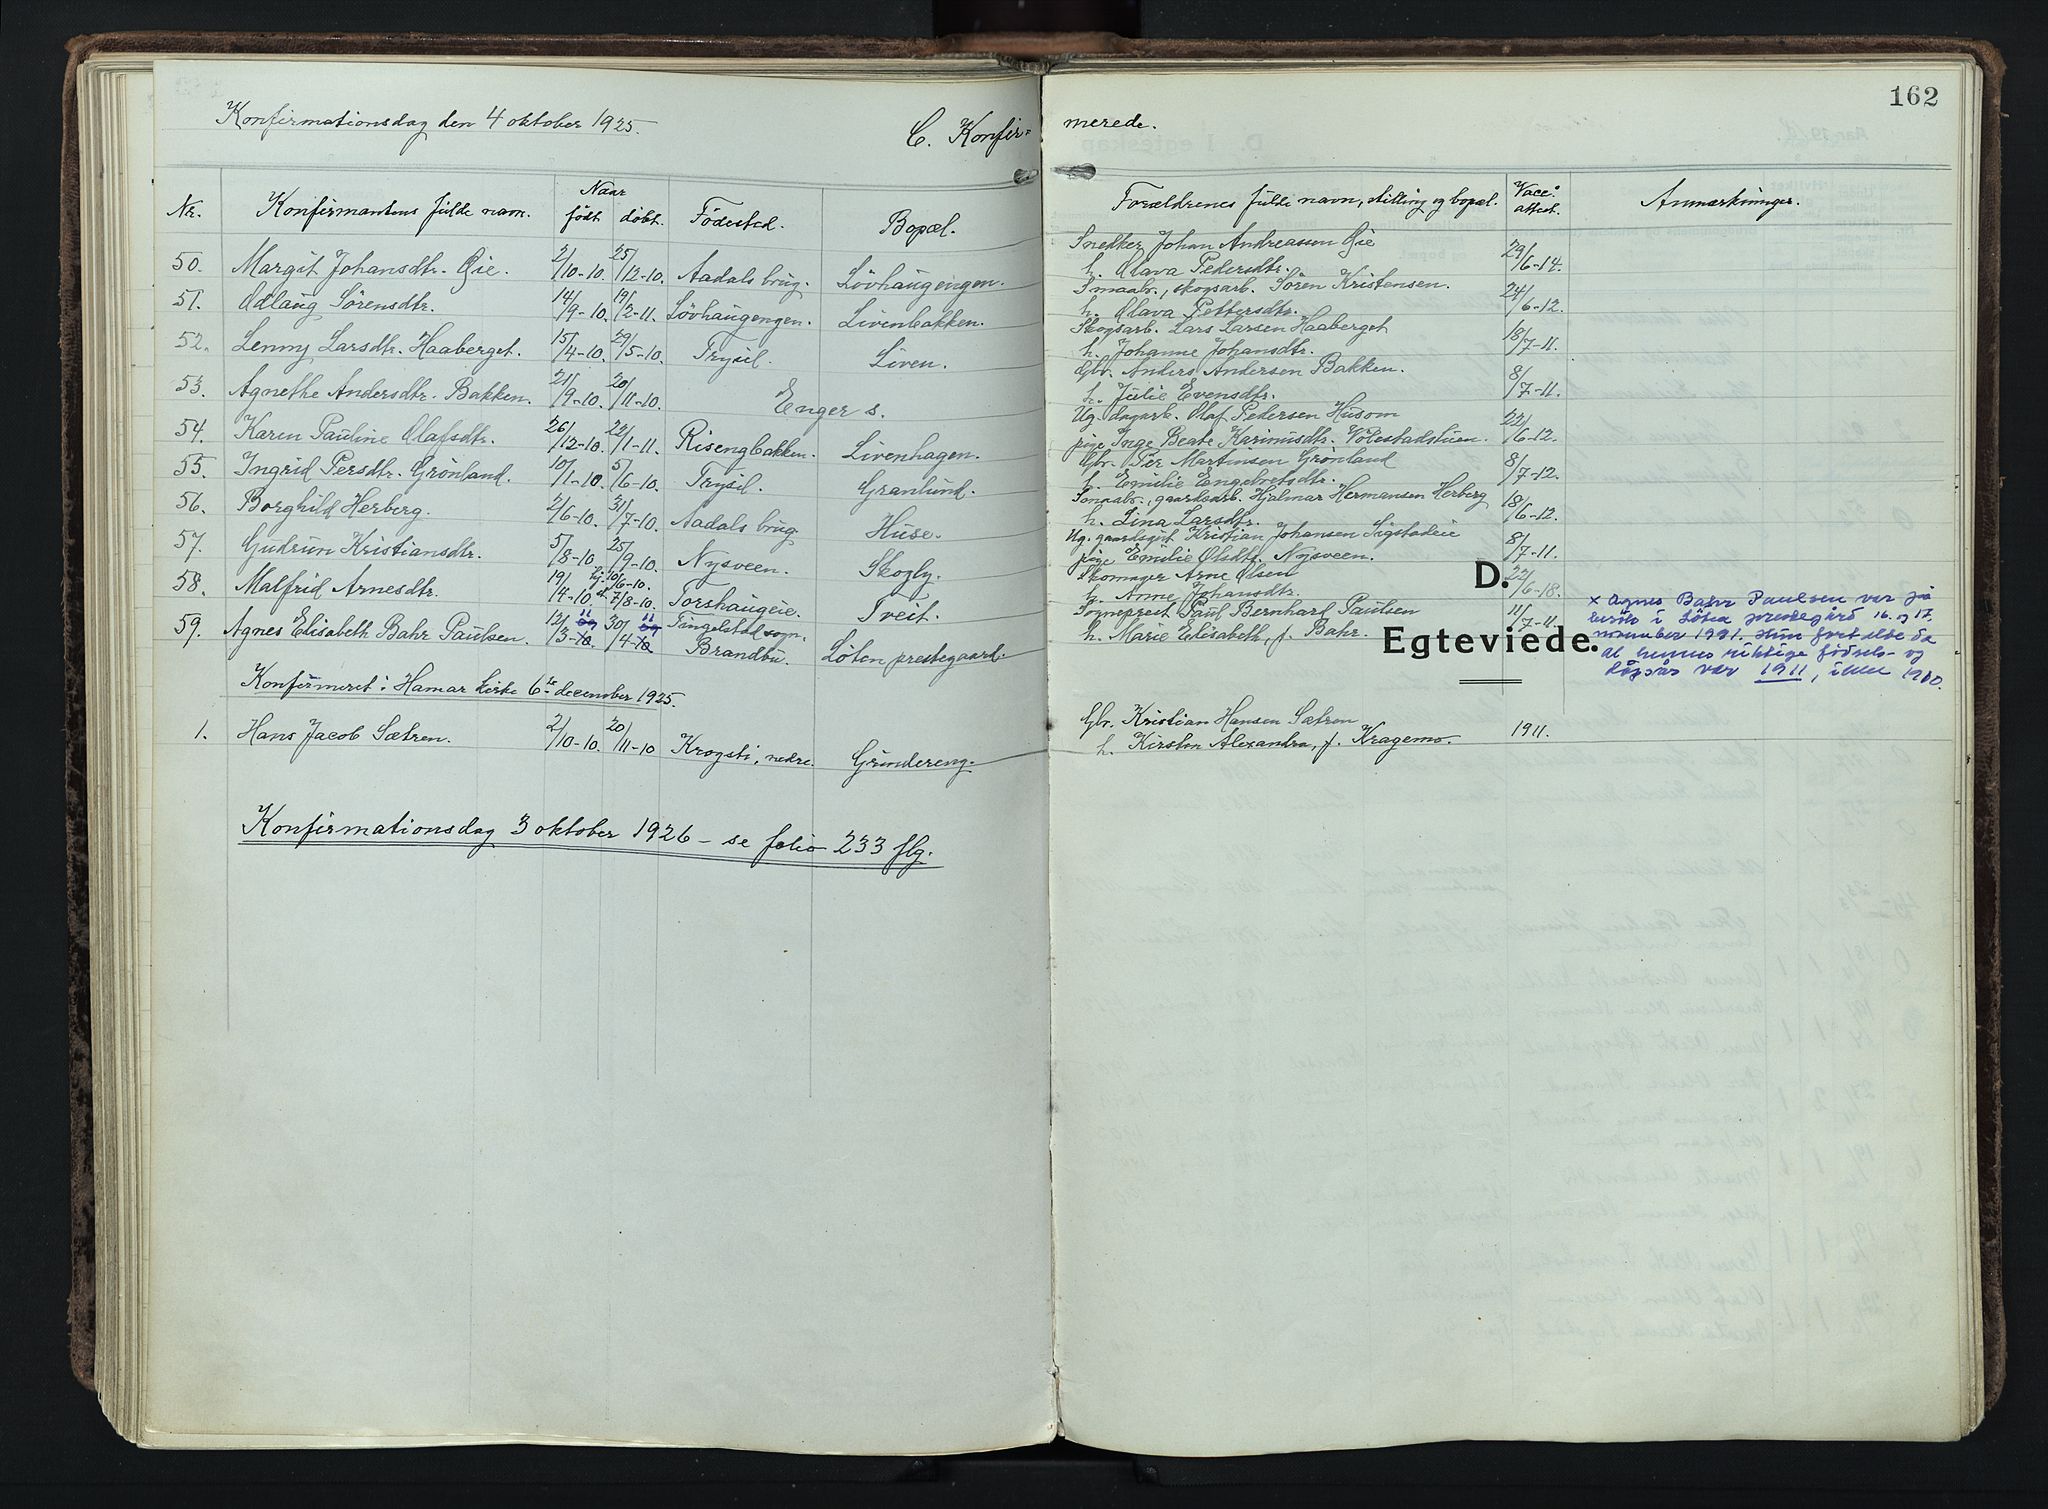 162
Konfirmationsdag den 4 oktober 1925.
C. Konfir=
merede.
Nr. Konfirmantens fulde navn. Naar født døbt. Fødested. Bopæl. Forældrenes fulde navn, stilling og bopæl. Vacc. attest. Anmerkninger.
50. Margit Johansdtr. Øie. 2/10-10. 25/12-10. Aadals brug. Lövhaugengen. Snedker Johan Andreassen Øie 29/6-14.
h. Olava Pedersdtr.
51. Odlaug Sörensdtr. 14/9-10. 19/2-11. Lövhaugengen. Livenbakken. Smaabr., skogsarb. Sören Kristensen. 24/6-12.
h. Olava Pettersdtr.
52. Lenny Larsdtr. Haaberget. 15/4-10. 29/5-10. Trysil. Liven. Skogsarb. Lars Larsen Haaberget 18/7-11.
h. Johanne Johansdtr.
53. Agnethe Andersdtr. Bakken. 21/9-10. 20/11-10. Enger s. Gbr. Anders Andersen Bakken. 8/7-11.
h. Julie Evensdtr.
54. Karen Pauline Olafsdtr. 26/12-10. 22/1-11. Risengbakken. Livenhagen. Ug. dagarb. Olaf Pedersen Husom 22/6-12.
pige Inge Beate Karinusdtr. Volestadstuen.
55. Ingrid Persdtr. Grönland. 10/1-10. 5/6-10. Trysil. Granlund. Gbr. Per Martinsen Grönland 8/7-12.
h. Emilie Engebretsdtr.
56. Borghild Herberg. 2/6-10. 31/7-10. Aadals brug. Huse. Smaabr., gaardsarb. Hjalmar Hermansen Herberg 18/6-12.
h. Lina Larsdtr.
57. Gudrun Kristiansdtr. 5/8-10. 25/9-10. Nysveen. Skogly. Ug. gaardsgut Kristian Johansen Sigstadeie 8/7-11.
pige Emilie Olsdtr. Nysveen.
58. Malfrid Arnesdtr. 19/4-10. hj. 10/6-10. st. 7/8-10. Torshaugeie. Tveit. Skomager Arne Olsen 22/6-18.
h. Anne Johansdtr.
59. Agnes Elisabeth Bahr Paulsen. 12/3-10. 11 30/4-10 11 Tingelstad sogn. Brandbu. Löten prestegaard. Sogneprest Paul Bernhard Paulsen 11/7-11.
h. Marie Elisabeth, f. Bahr.
D.
Egteviede.
x Agnes Bahr Paulsen var på
besök i Löten prestegård 16. og 17.
november 1991. Hun fortalte da
at hennes riktige födsels- og
dåpsår var 1911, ikke 1910.
Konfirmeret i Hamar kirke 6te december 1925.
1. Hans Jacob Sætren. 2/10-10. 20/11-10 Krogsti, nedre. Grundereng. Gbr. Kristian Hansen Sætren 1911.
h. Kirsten Alexandra, f. Kragemo.
Konfirmationsdag 3 oktober 1926 – se folio 233 flg.